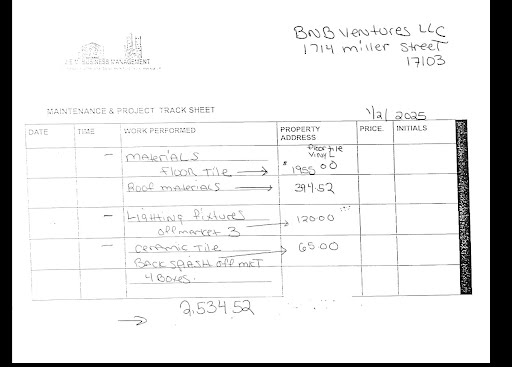 BNB Ventures LLC
1714 miller Street
17103
BUSINESS MANAGEMENT
MAINTENANCE & PROJECT TRACK SHEET
1/2/2025
DATE TIME WORK PERFORMED PROPERTY ADDRESS PRICE. INITIALS
Floor tile
Vinyl
- Materials
Floor Tile → $ 1955 00
Roof materials → 394.52
- Lighting fixtures
off market 3 → 120 00
- Ceramic Tile → 65.00
BACK SPLASH off MKT
4 Boxes.
→ 2,534.52